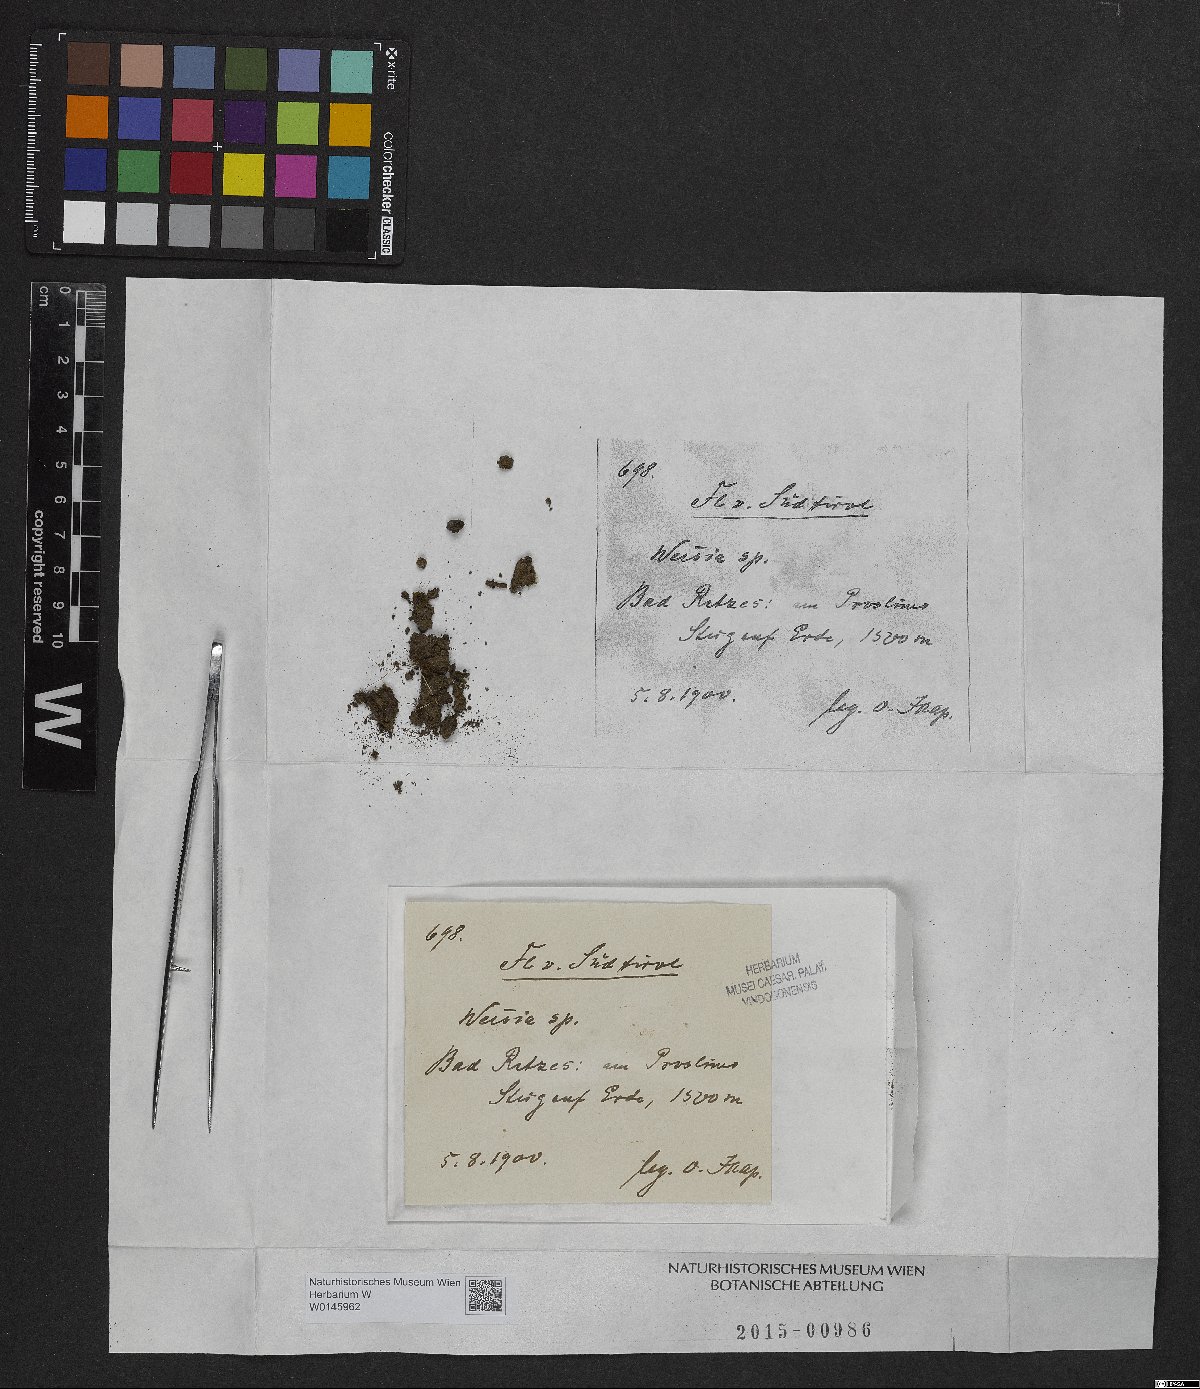 x-rite
colorchecker CLASSIC
cm
0 1 2 3 4 5 6 7 8 9 10
copyright reserved
W
698.
Fl v. Südtirol
Weisia sp.
Bad Ratzes: am Proslines
Steig auf Erde, 1500 m
5. 8. 1900.
leg. O. Jaap.
698.
Fl v. Südtirol
Weisia sp.
Bad Ratzes: am Proslines
Steig auf Erde, 1500 m
5. 8. 1900.
leg. O. Jaap.
HERBARIUM
MUSEI CAESAR. PALAT.
VINDOBONENSIS
Naturhistorisches Museum Wien
Herbarium W
W0145962
NATURHISTORISCHES MUSEUM WIEN
BOTANISCHE ABTEILUNG
2015-00986